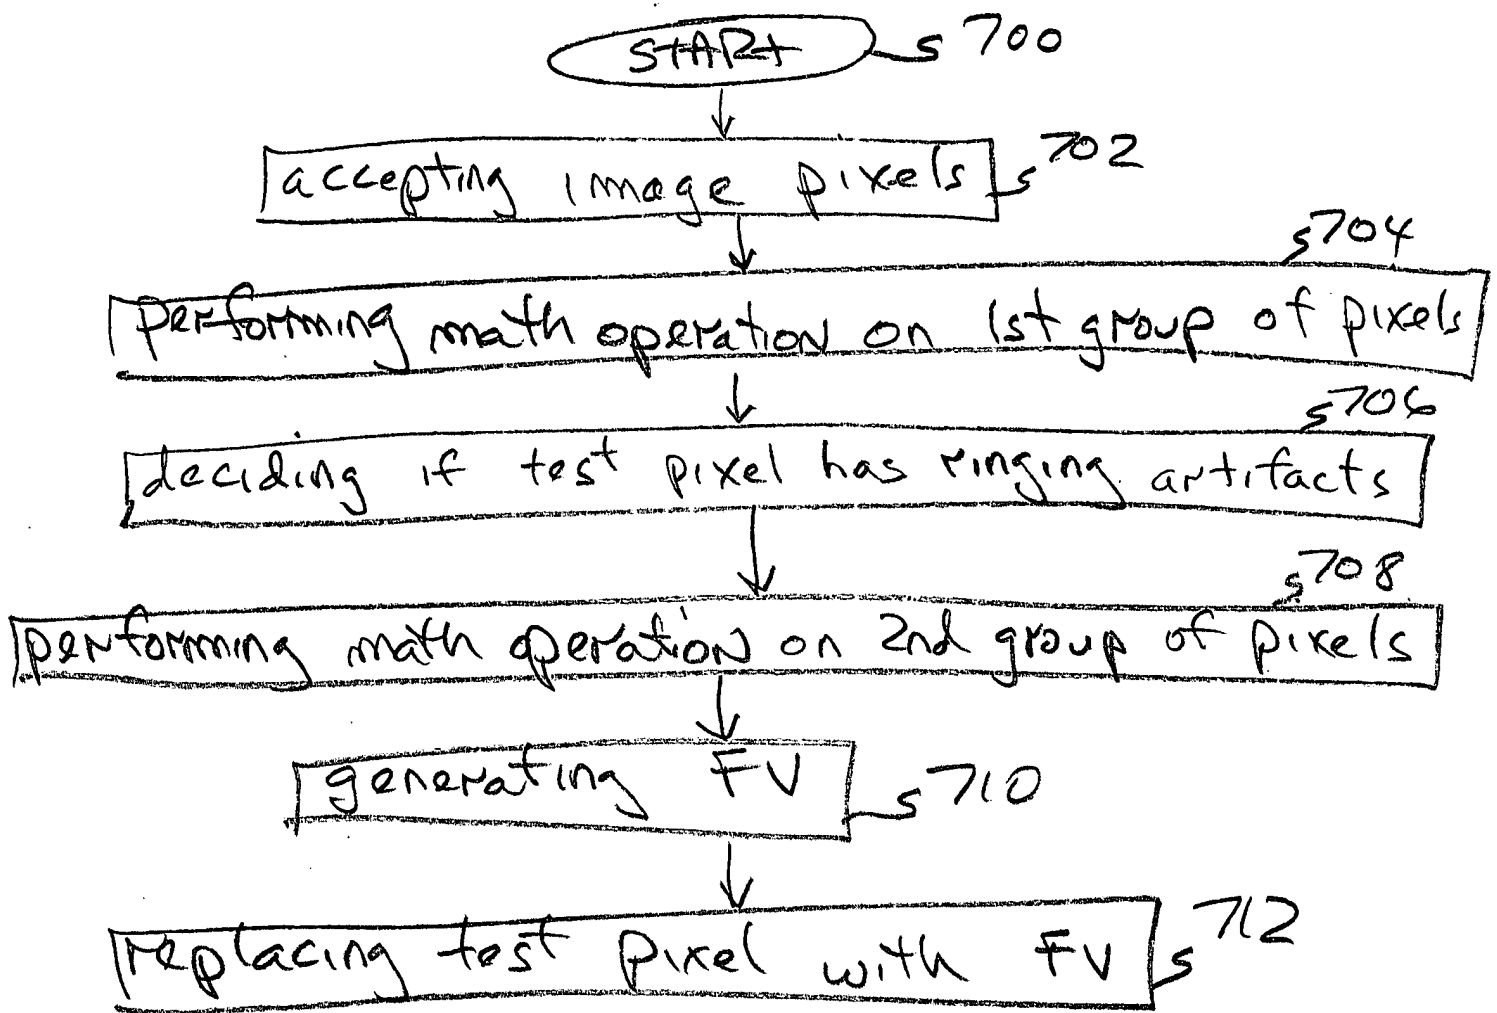 START 700
accepting image pixels 702
704
performing math operation on 1st group of pixels
706
deciding if test pixel has ringing artifacts
708
performing math operation on 2nd group of pixels
generating FV 710
replacing test pixel with FV 712